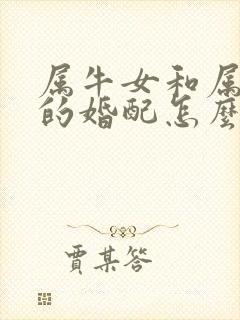 属牛女和属
的婚配怎麼
賈某答